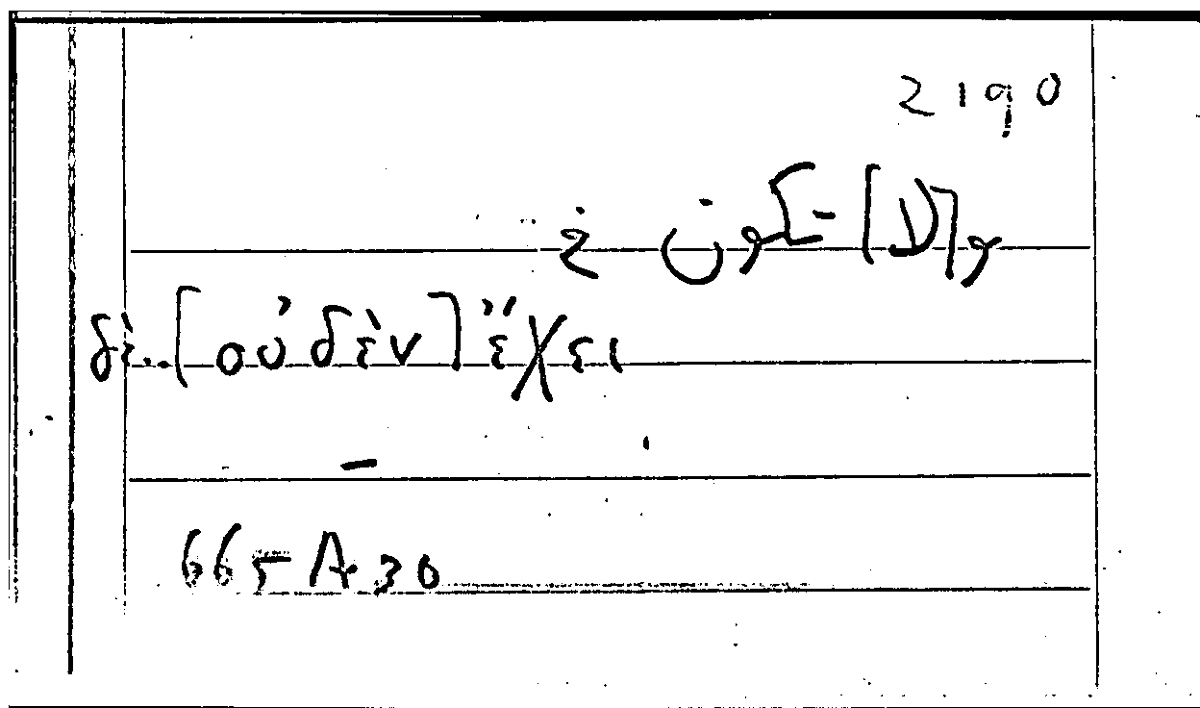 2190
و[لا] يكون في
δὲ..[οὐδὲν] ἔχει
665 A 30